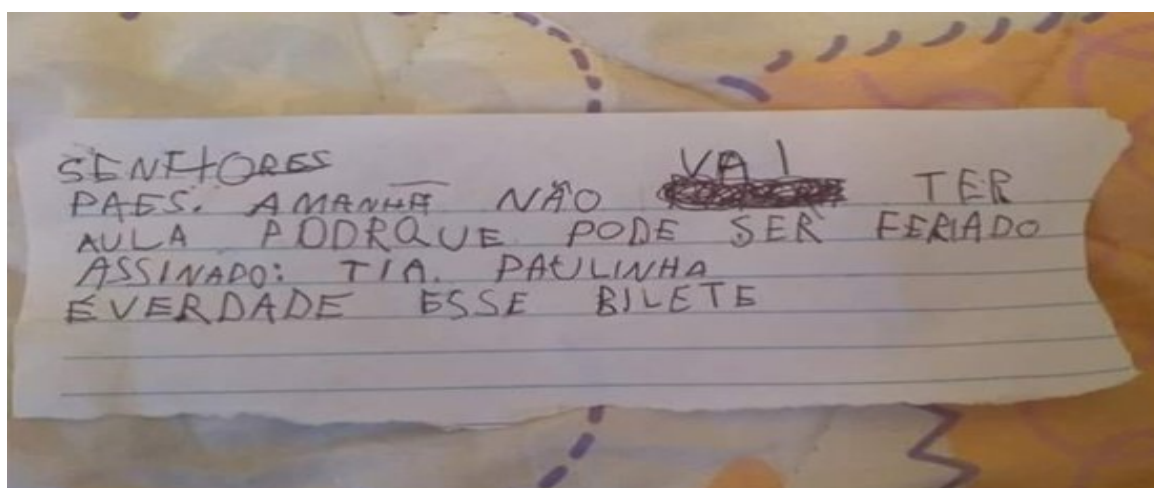 SENHORES
PAES. AMANHÃ NÃO VAI TER
AULA PODRQUE PODE SER FERIADO
ASSINADO: TIA. PAULINHA
ÉVERDADE ESSE BILETE